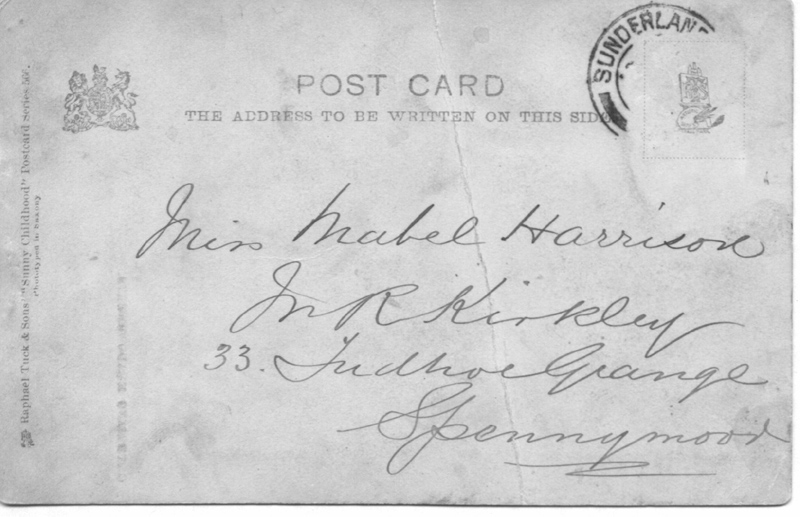 SUNDERLAND
POST CARD
THE ADDRESS TO BE WRITTEN ON THIS SIDE
Miss Mabel Harrison
Mr R Kirkley
33. Tudhoe Grange
Spennymoor
Raphael Tuck & Sons' "Sunny Childhood" Postcard Series